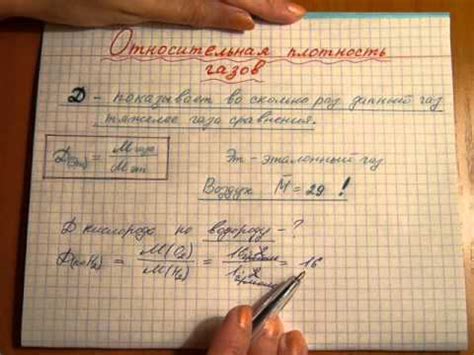 Относительная плотность
газов
D - показывает во сколько раз данный газ
тяжелее газа сравнения.
D(эт) = M газа / M эт
Эт - эталонный газ
Воздух M̄ = 29 !
D кислорода по водороду - ?
D(по H₂) = M(O₂) / M(H₂) = = 16